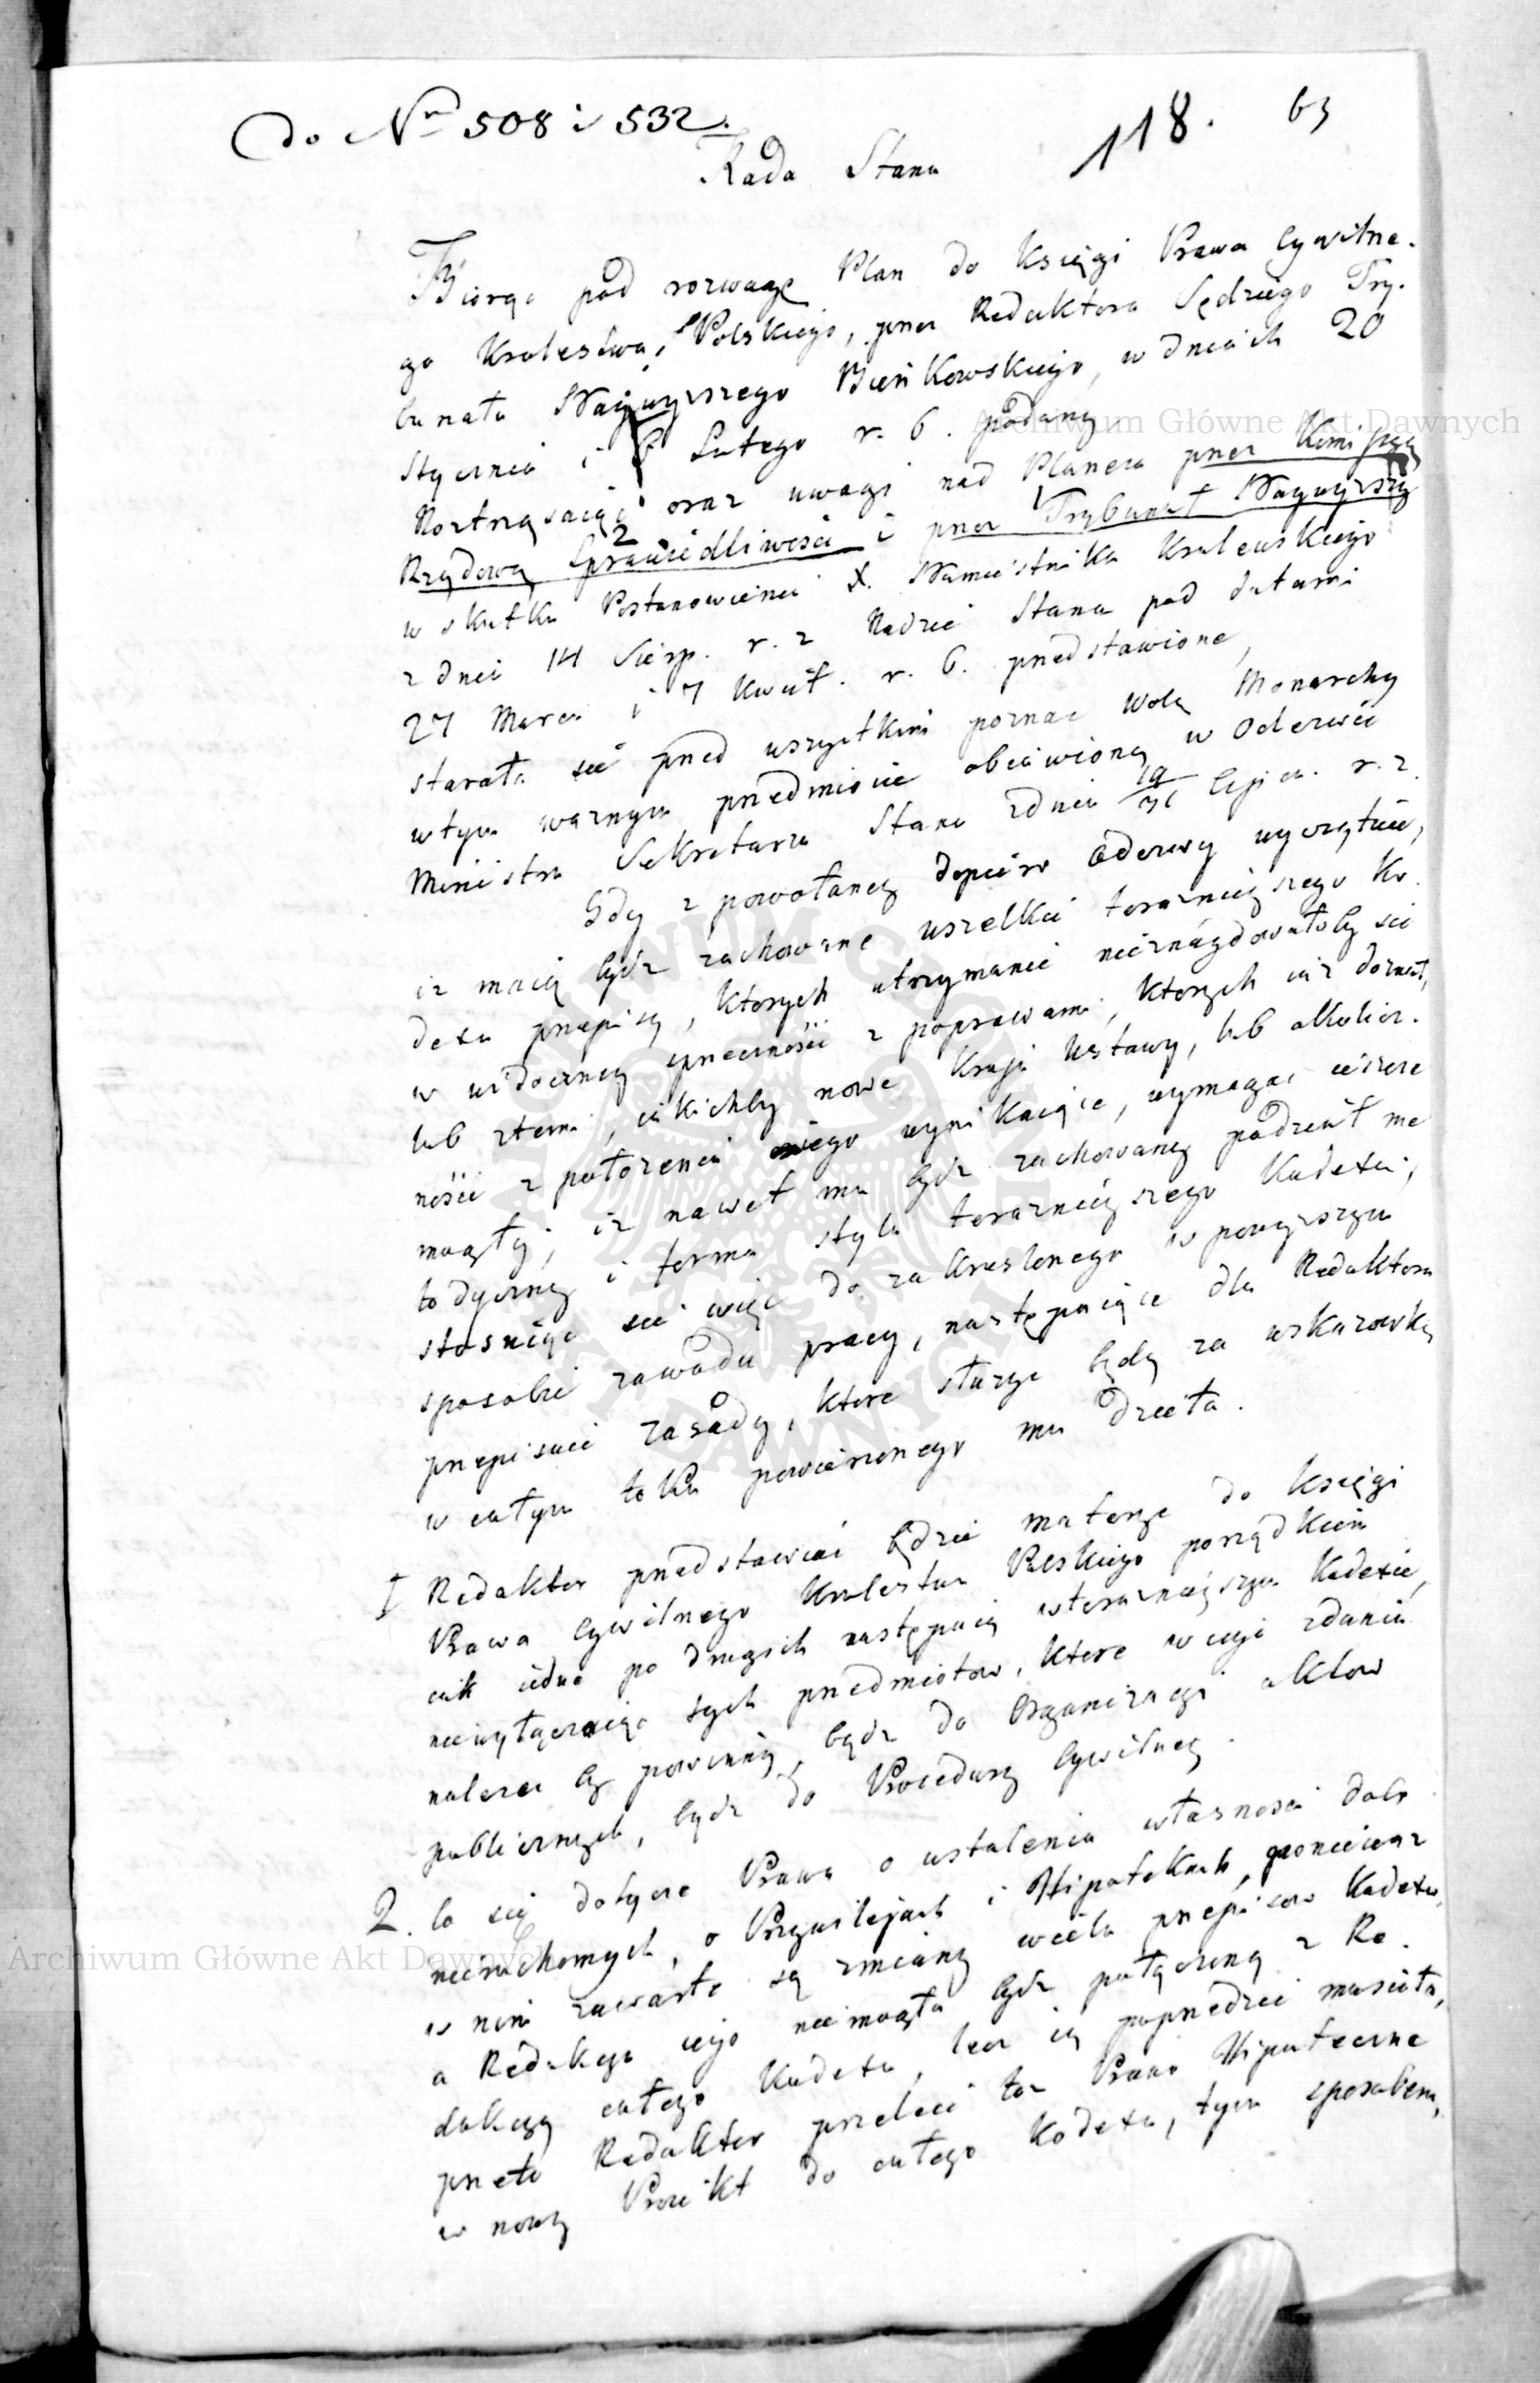 do Nr 508 i 532.
118. 63
Rada Stanu
Biorąc pod rozwagę Plan do Księgi Prawa Cywilne-
go Krolestwa Polskiego, przez Redaktora Sędziego Try-
bunału Naywyższego Bieńkowskiego, w dniach 20
Stycznia i 8 Lutego r. b. podany
Roztrząsaiąc oraz uwagi nad Planem przez Komissyą
Rządową Sprawiedliwości i przez Trybunał Naywyższy
w skutku Postanowienia X. Namiestnika Krolewskiego
z dnia 14 Sierp. r. z Radzie Stanu pod datami
27 Marca i 7 Kwiet. r. b. przedstawione,
starała sie przed wszystkim poznac wolą Monarchy
w tym ważnym przedmiocie obiawioną w Odezwie
Ministra Sekretarza Stanu z dnia 19/31 Lipca. r. z.
Gdy z powołaney dopiero Odezwy wyczytuie,
iz maią bydz zachowane wszelkie teraznieyszego Ko-
dexu przepisy, ktorych utrzymanie nieznaydowałoby sie
w widoczney sprzeczności z poprawami, ktorych iuż doznał,
lub z temi, iakichby nowe Kraju Ustawy, lub okolicz-
ności z położenia iego wynikaiące, wymagac ieszcze
mogły; iz nawet ma bydz zachowany podział me-
todyczny i forma stylu teraznieyszego Kodexu;
stosuiąc sie więc do zakreslonego w powyższym
sposobie zawodu pracy, następuiące dla Redaktora
przepisuie zasady, ktore służyc będą za wskazowkę
w całym toku powierzonego mu dzieła.
1 Redaktor przedstawiac będzie materye do Księgi
Prawa Cywilnego Krolestwa Polskiego porządkiem
iak iedne po drugich następuią w teraznieyszym Kodexie,
niewyłączaiąc tych przedmiotow, ktore w iego zdaniu
należec by powinny, bądz do Organizacyi aktow
publicznych, bądz do Procedury Cywilney.
2. Co się dotycze Prawa o ustaleniu własności dobr
nieruchomych, o Przywilejach i Hipotekach, ponieważ
w nim zawarte są zmiany wielu przepisow Kodexu,
a Redakcya iego niemogła bydz połączoną z Re-
dakcyą całego Kodexu, lecz ią poprzedzić musiała,
przeto Redaktor przeleie toż Prawo Hipoteczne
w nowy Proiekt do całego Kodexu, tym sposobem,
Archiwum Główne Akt Dawnych
Archiwum Główne Akt Dawnych
ARCHIWUM GŁÓWNE AKT DAWNYCH